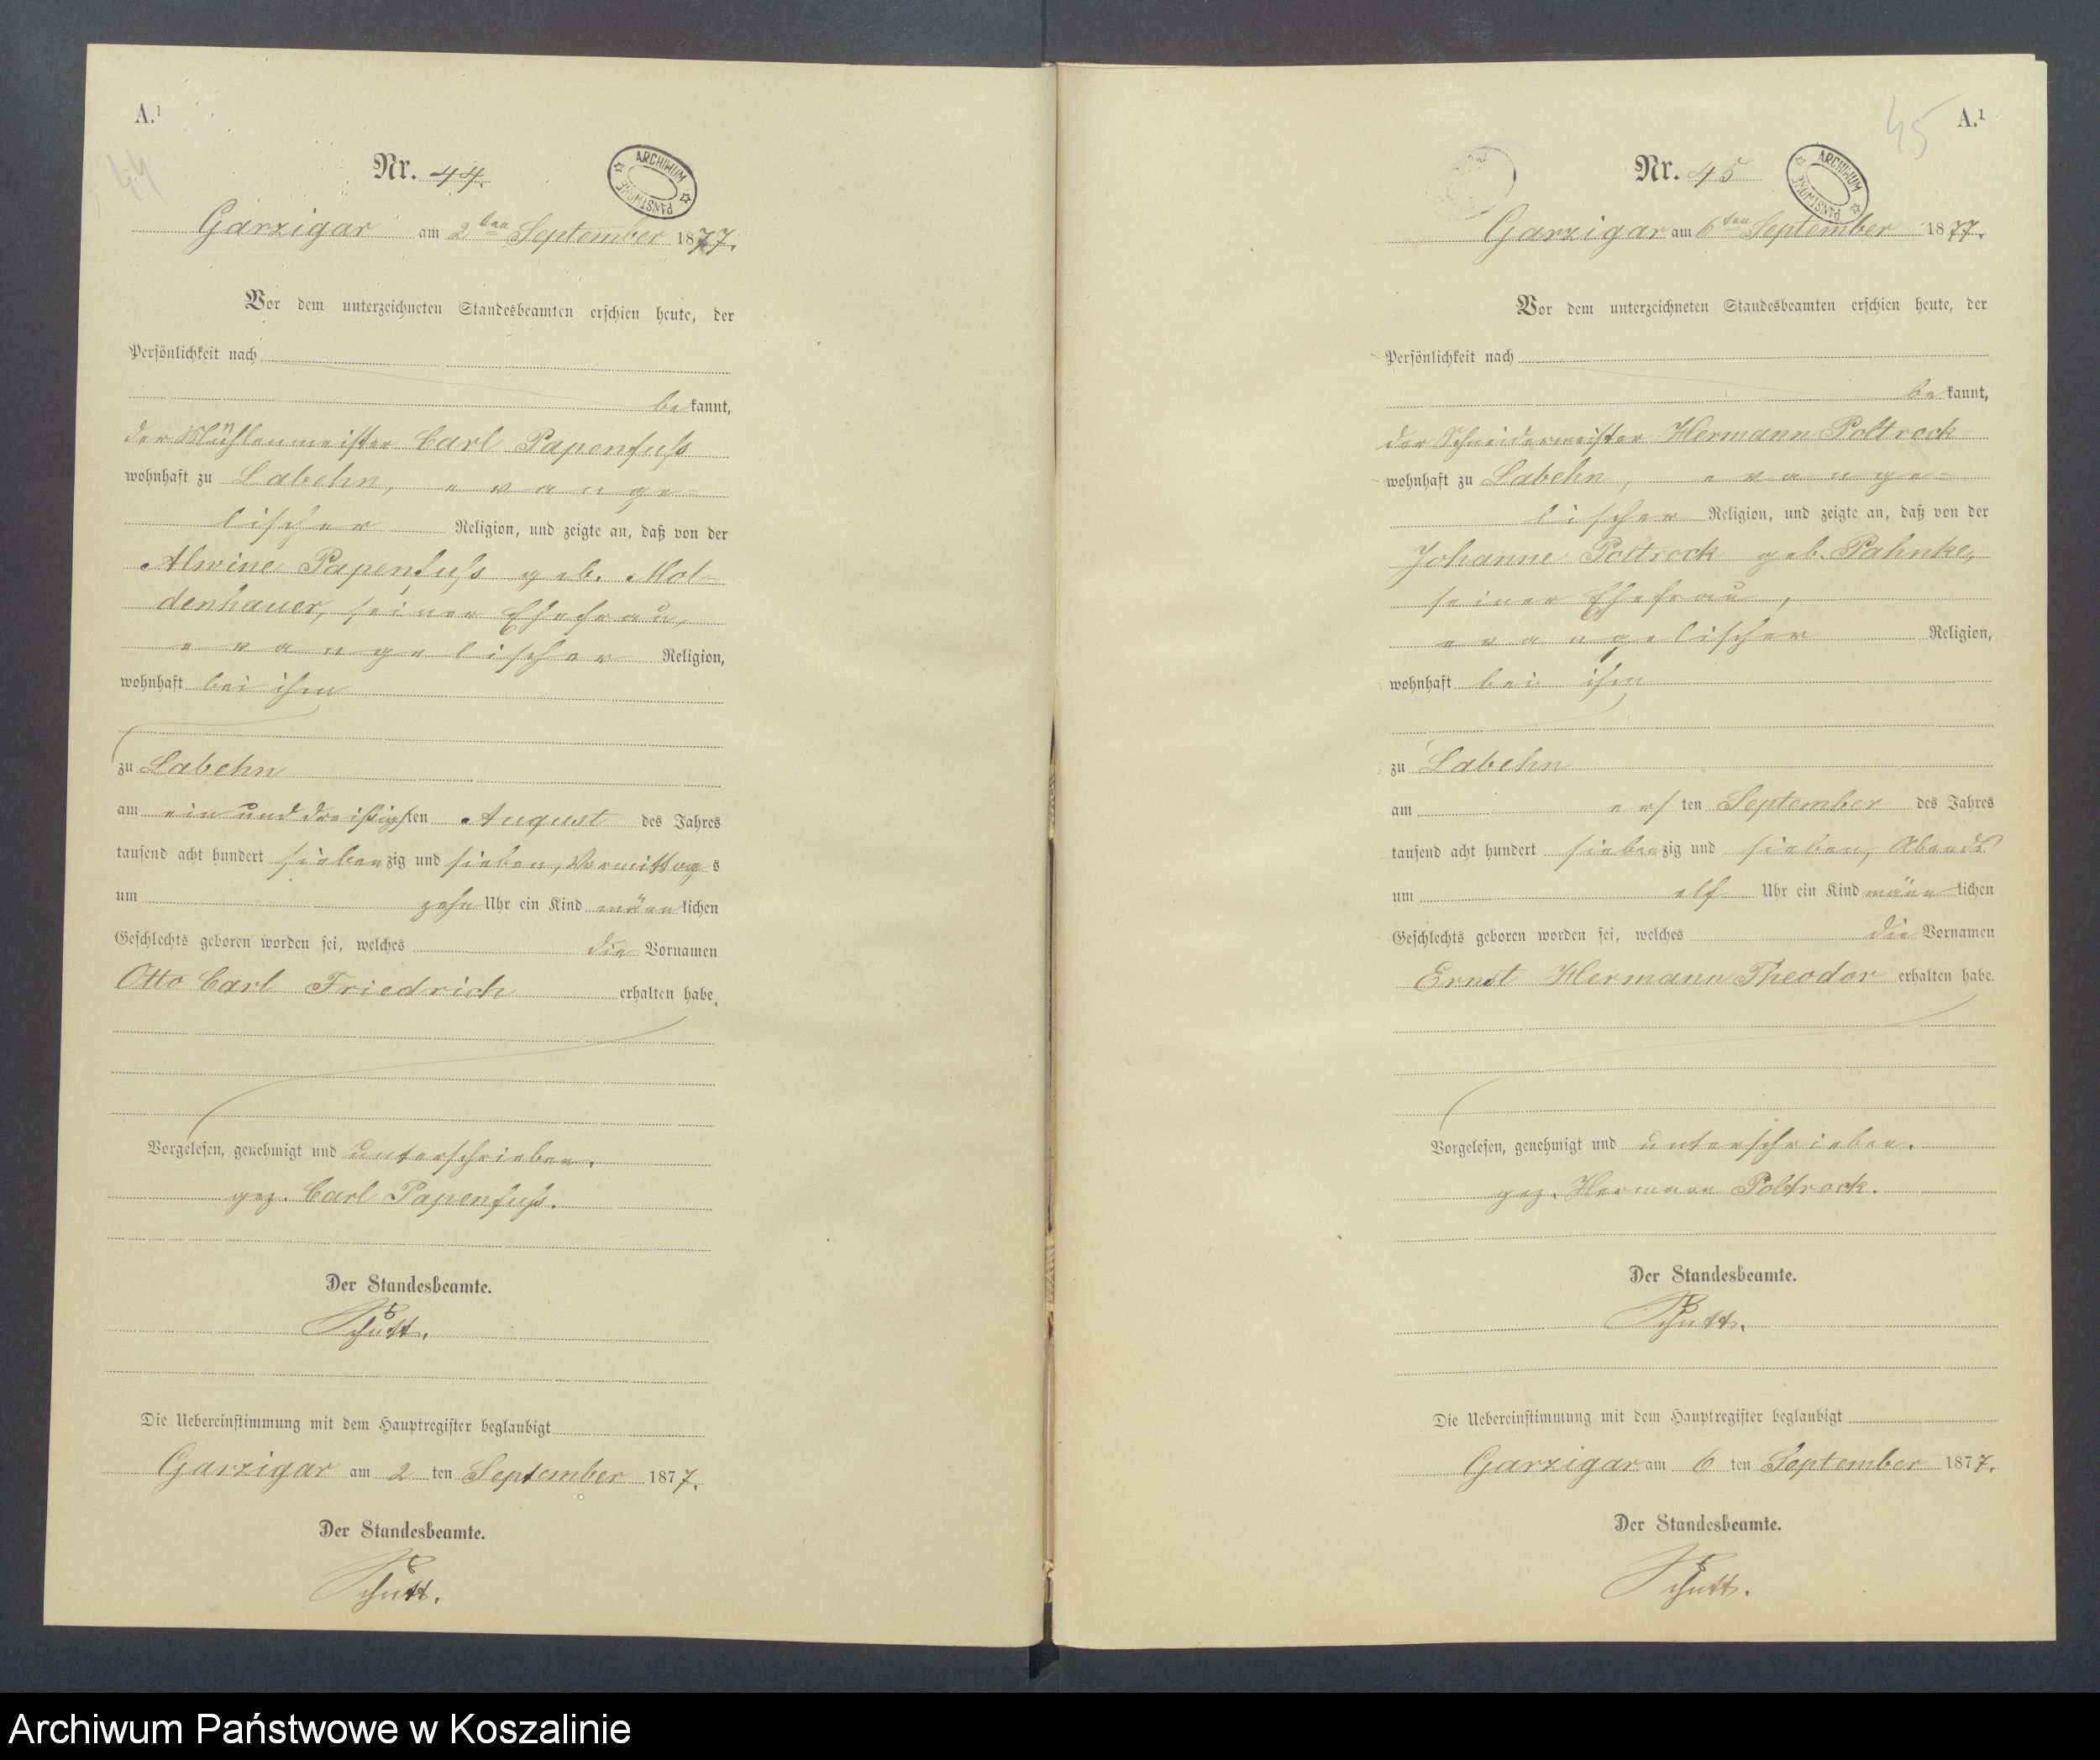 A.¹
44
Nr. 44.
ARCHIWUM PAŃSTWOWE
Garzigar am 2ten September 1877.
Vor dem unterzeichneten Standesbeamten erschien heute, der
Persönlichkeit nach
bekannt,
der Mühlenmeister Carl Papenfuss
wohnhaft zu Labehn, evange-
lischer Religion, und zeigte an, daß von der
Alwine Papenfuss geb. Mol-
denhauer, seiner Ehefrau,
evangelischer Religion,
wohnhaft bei ihm
zu Labehn
am ein und dreißigsten August des Jahres
tausend acht hundert siebenzig und sieben, Vormittags
um zehn Uhr ein Kind männlichen
Geschlechts geboren worden sei, welches die Vornamen
Otto Carl Friedrich erhalten habe.
Vorgelesen, genehmigt und unterschrieben.
gez. Carl Papenfuss.
Der Standesbeamte.
Schütt.
Die Uebereinstimmung mit dem Hauptregister beglaubigt
Garzigar am 2 ten September 1877.
Der Standesbeamte.
Schütt.
A.¹
45
Nr. 45
ARCHIWUM PAŃSTWOWE
Garzigar am 6ten September 1877.
Vor dem unterzeichneten Standesbeamten erschien heute, der
Persönlichkeit nach
bekannt,
der Schneidermeister Hermann Poltrock
wohnhaft zu Labehn, evange-
lischer Religion, und zeigte an, daß von der
Johanne Poltrock geb. Pahnke,
seiner Ehefrau,
evangelischer Religion,
wohnhaft bei ihm
zu Labehn
am ersten September des Jahres
tausend acht hundert siebenzig und sieben, Abends
um elf Uhr ein Kind männlichen
Geschlechts geboren worden sei, welches die Vornamen
Ernst Hermann Theodor erhalten habe.
Vorgelesen, genehmigt und unterschrieben.
gez. Hermann Poltrock.
Der Standesbeamte.
Schütt.
Die Uebereinstimmung mit dem Hauptregister beglaubigt
Garzigar am 6 ten September 1877.
Der Standesbeamte.
Schütt.
Archiwum Państwowe w Koszalinie